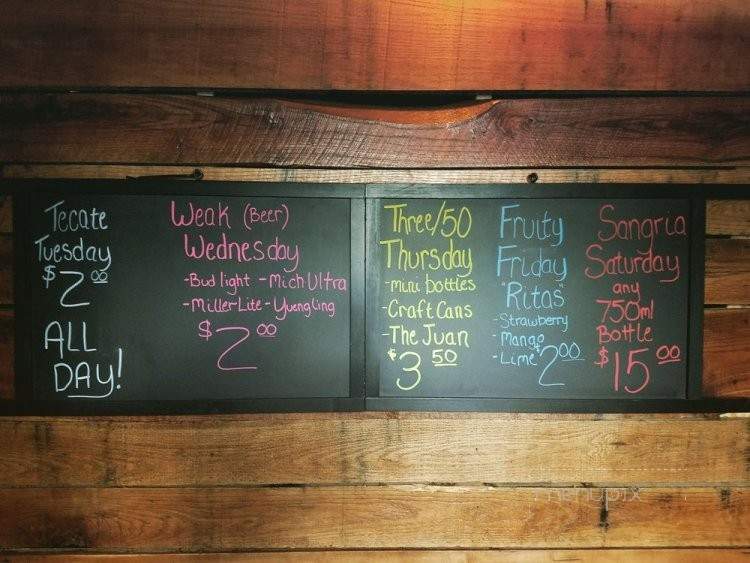 Tecate
Tuesday
$2.00
ALL
DAY!
Weak (Beer)
Wednesday
-Bud light -Mich Ultra
-Miller Lite -Yuengling
$2.00
Three/50
Thursday
-mini bottles
-Craft Cans
-The Juan
$3.50
Fruity
Friday
"Ritas"
-Strawberry
-Mango
-Lime $2.00
Sangria
Saturday
any
750ml
Bottle
$15.00
menupix